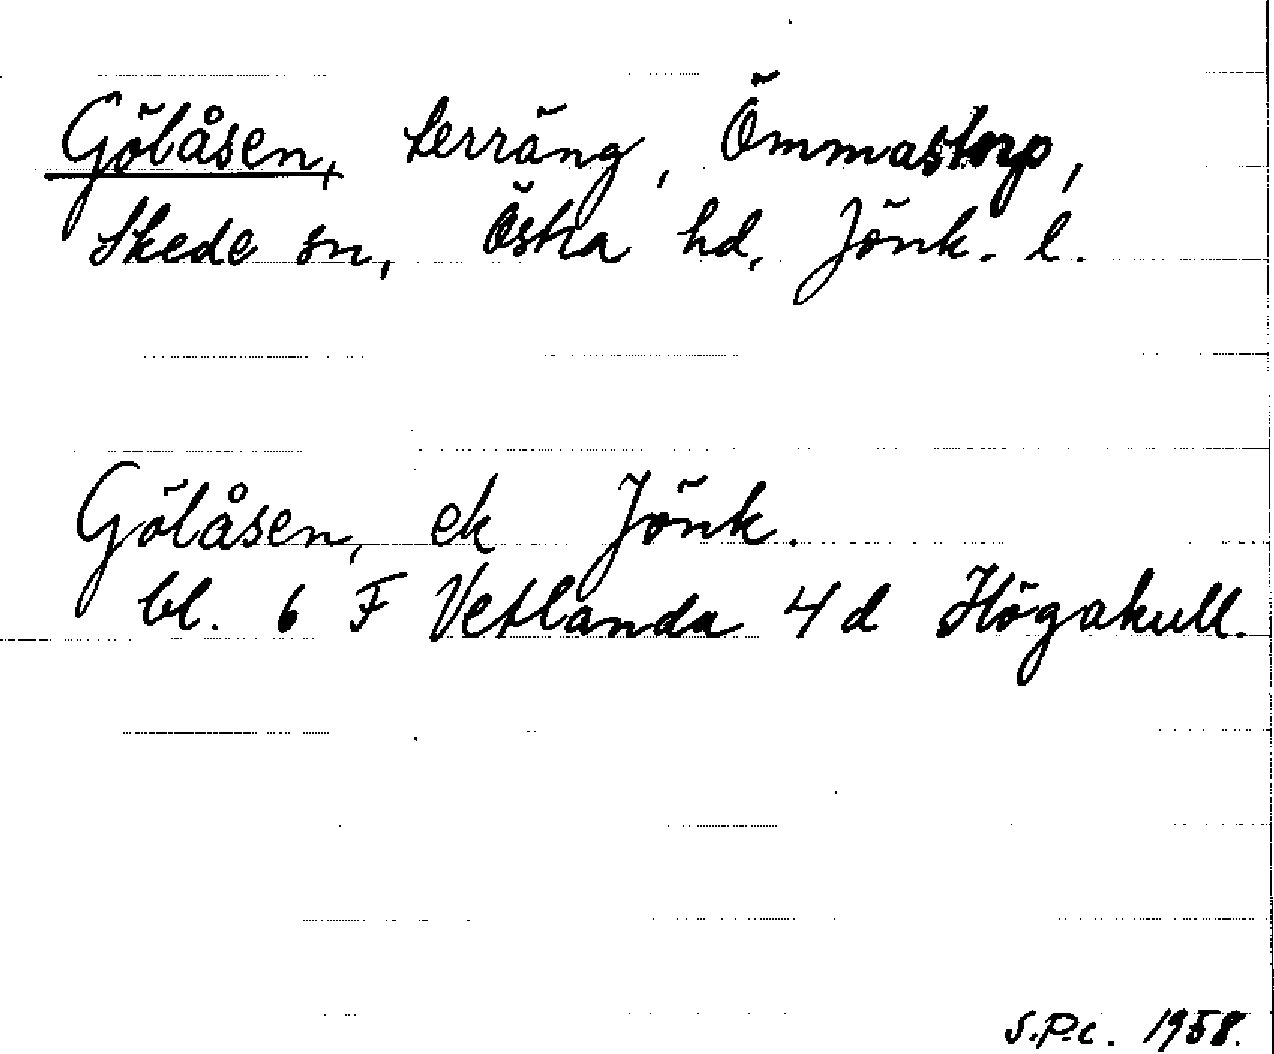 Gölåsen, terräng, Ömmastorp,
Skede sn, Östra hd, Jönk. l.
Gölåsen, ek Jönk.
bl. 6 F Vetlanda 4 d Högakull.
S.P.C. 1958.